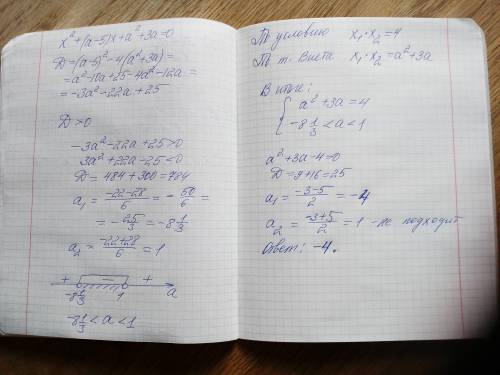 x² + (a-5)x + a² + 3a = 0
D = (a-5)² - 4(a² + 3a) =
= a² - 10a + 25 - 4a² - 12a =
= -3a² - 22a + 25
D > 0
-3a² - 22a + 25 > 0
3a² + 22a - 25 < 0
D = 484 + 300 = 784
a₁ = (-22-28)/6 = -50/6 =
= -25/3 = -8 1/3
a₂ = (-22+28)/6 = 1
+ - +
-8 1/3 1 a
-8 1/3 < a < 1
По условию x₁·x₂ = 4
По т. Виета x₁·x₂ = a² + 3a
В итоге:
{ a² + 3a = 4
-8 1/3 < a < 1
a² + 3a - 4 = 0
D = 9 + 16 = 25
a₁ = (-3-5)/2 = -4
a₂ = (-3+5)/2 = 1 - не подходит
Ответ: -4.